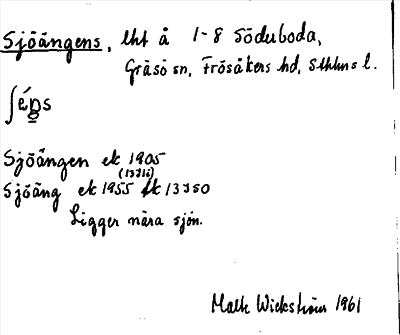 Sjöängens, lht å 1-8 Söderboda,
Gräsö sn, Frösåkers hd, Sthlms l.
ʃéŋs
Sjöängen ek 1905
(13J1i)
Sjöäng ek 1955 13J50
Ligger nära sjön.
Wickström 1961